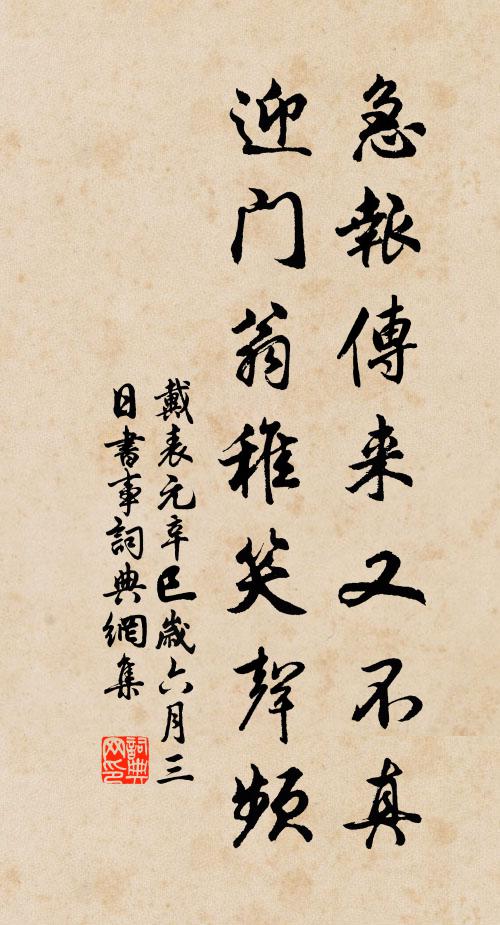 急報傳来又不真
迎门翁稚笑聲頻
戴表元辛巳歳六月三
日書事詞典網集
詞典网印